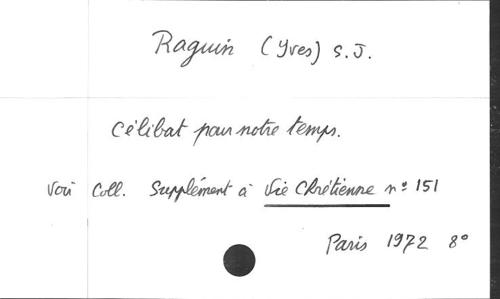 Raguin (Yves) S.J.
Célibat pour notre temps.
Voir Coll. Supplément à Vie Chrétienne n° 151
Paris 1972 8°